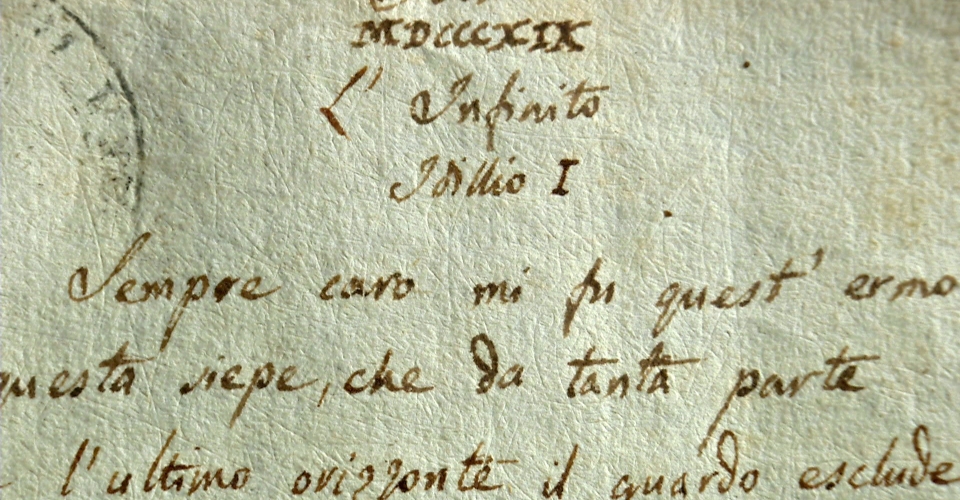 MDCCCXIX
L' Infinito
Idillio I
Sempre caro mi fu quest' ermo
questa siepe, che da tanta parte
l'ultimo orizzonte il guardo esclude